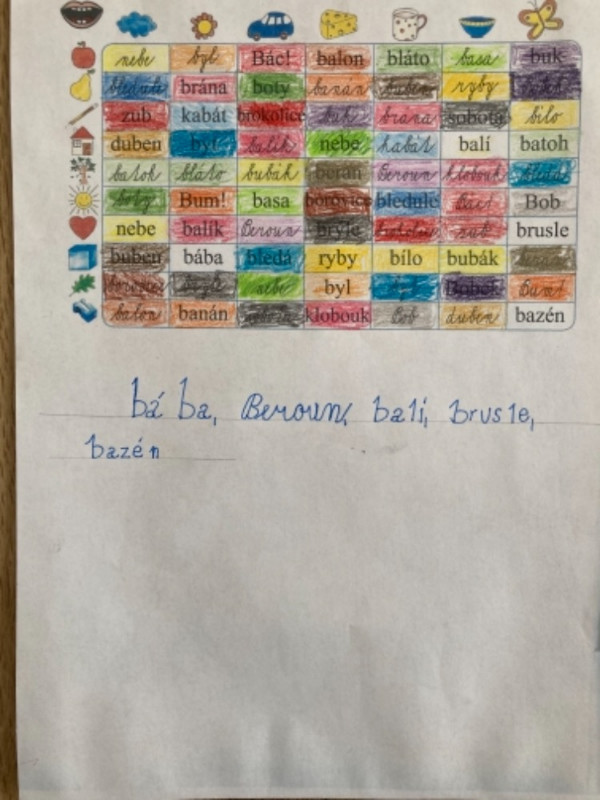 nebe byl Bác! balon bláto basa buk
bledule brána boty banán buben ryby
zub kabát brokolice buk brána sobota bílo
duben byt balík nebe kabát balí batoh
batoh bláto bubák beran Beroun klobouk bledá
boty Bum! basa borovice bledule Bác! Bob
nebe balík Beroun brýle brokolice zub brusle
buben bába bledá ryby bílo bubák beran
borovice brýle nebe byl byt Bobek Bum!
balon banán sobota klobouk Bob duben bazén
bába, Beroun, balí, brusle,
bazén